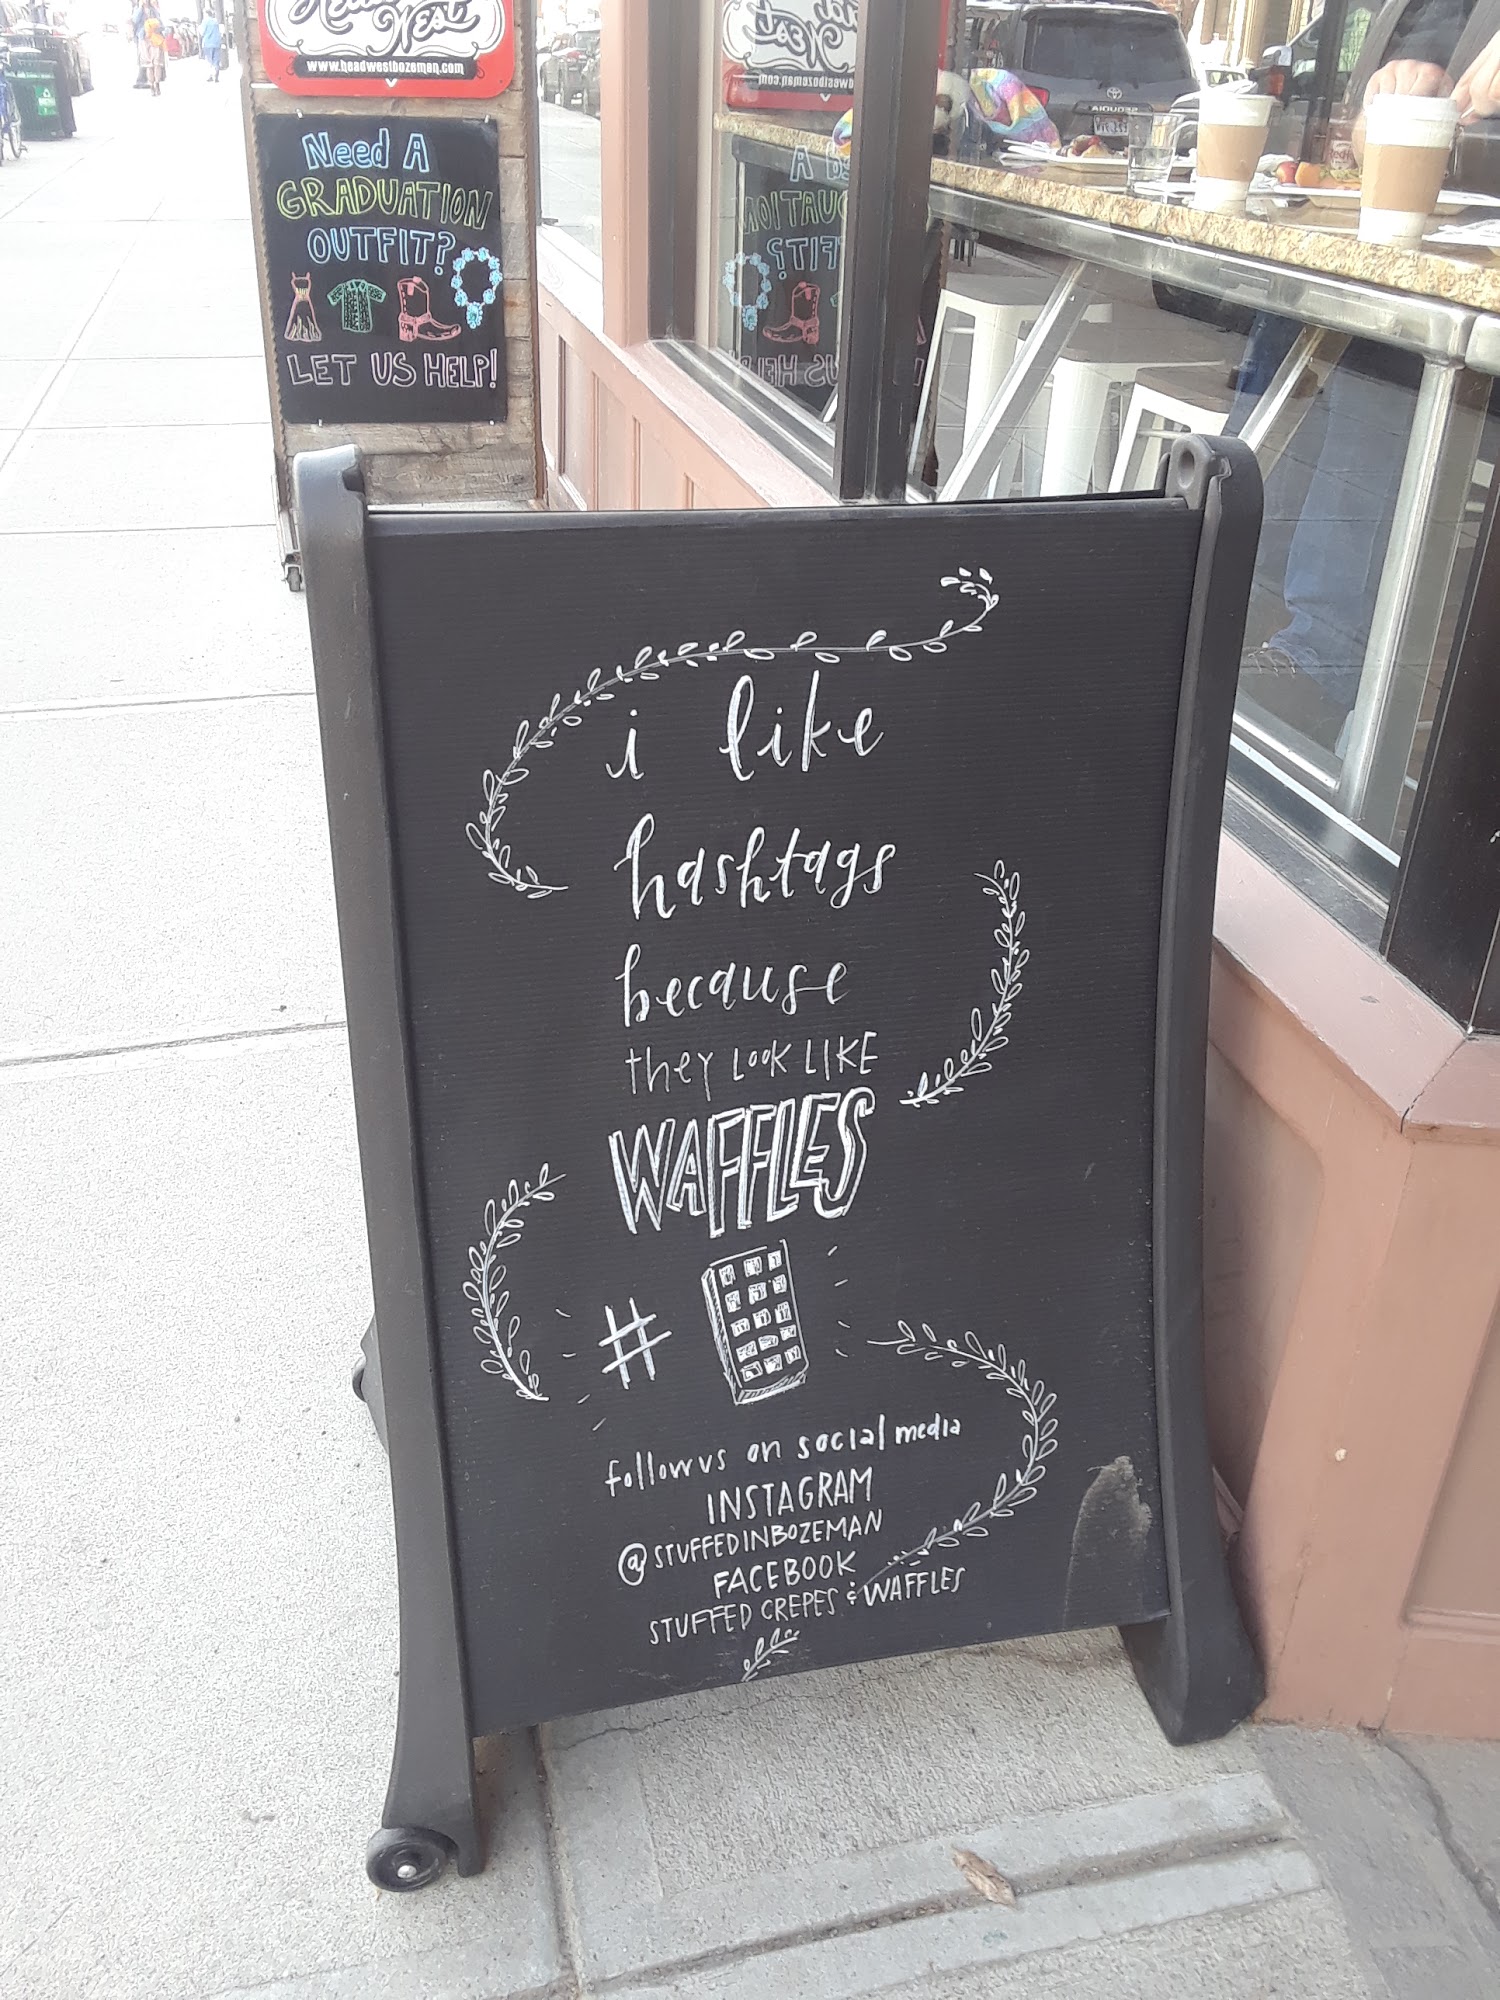 West
www.headwestbozeman.com
Need A
GRADUATION
OUTFIT?
LET US HELP!
SEQUOIA
i like
hashtags
because
they LOOK LIKE
WAFFLES
#
follow us on social media
INSTAGRAM
@STUFFEDINBOZEMAN
FACEBOOK
STUFFED CREPES & WAFFLES